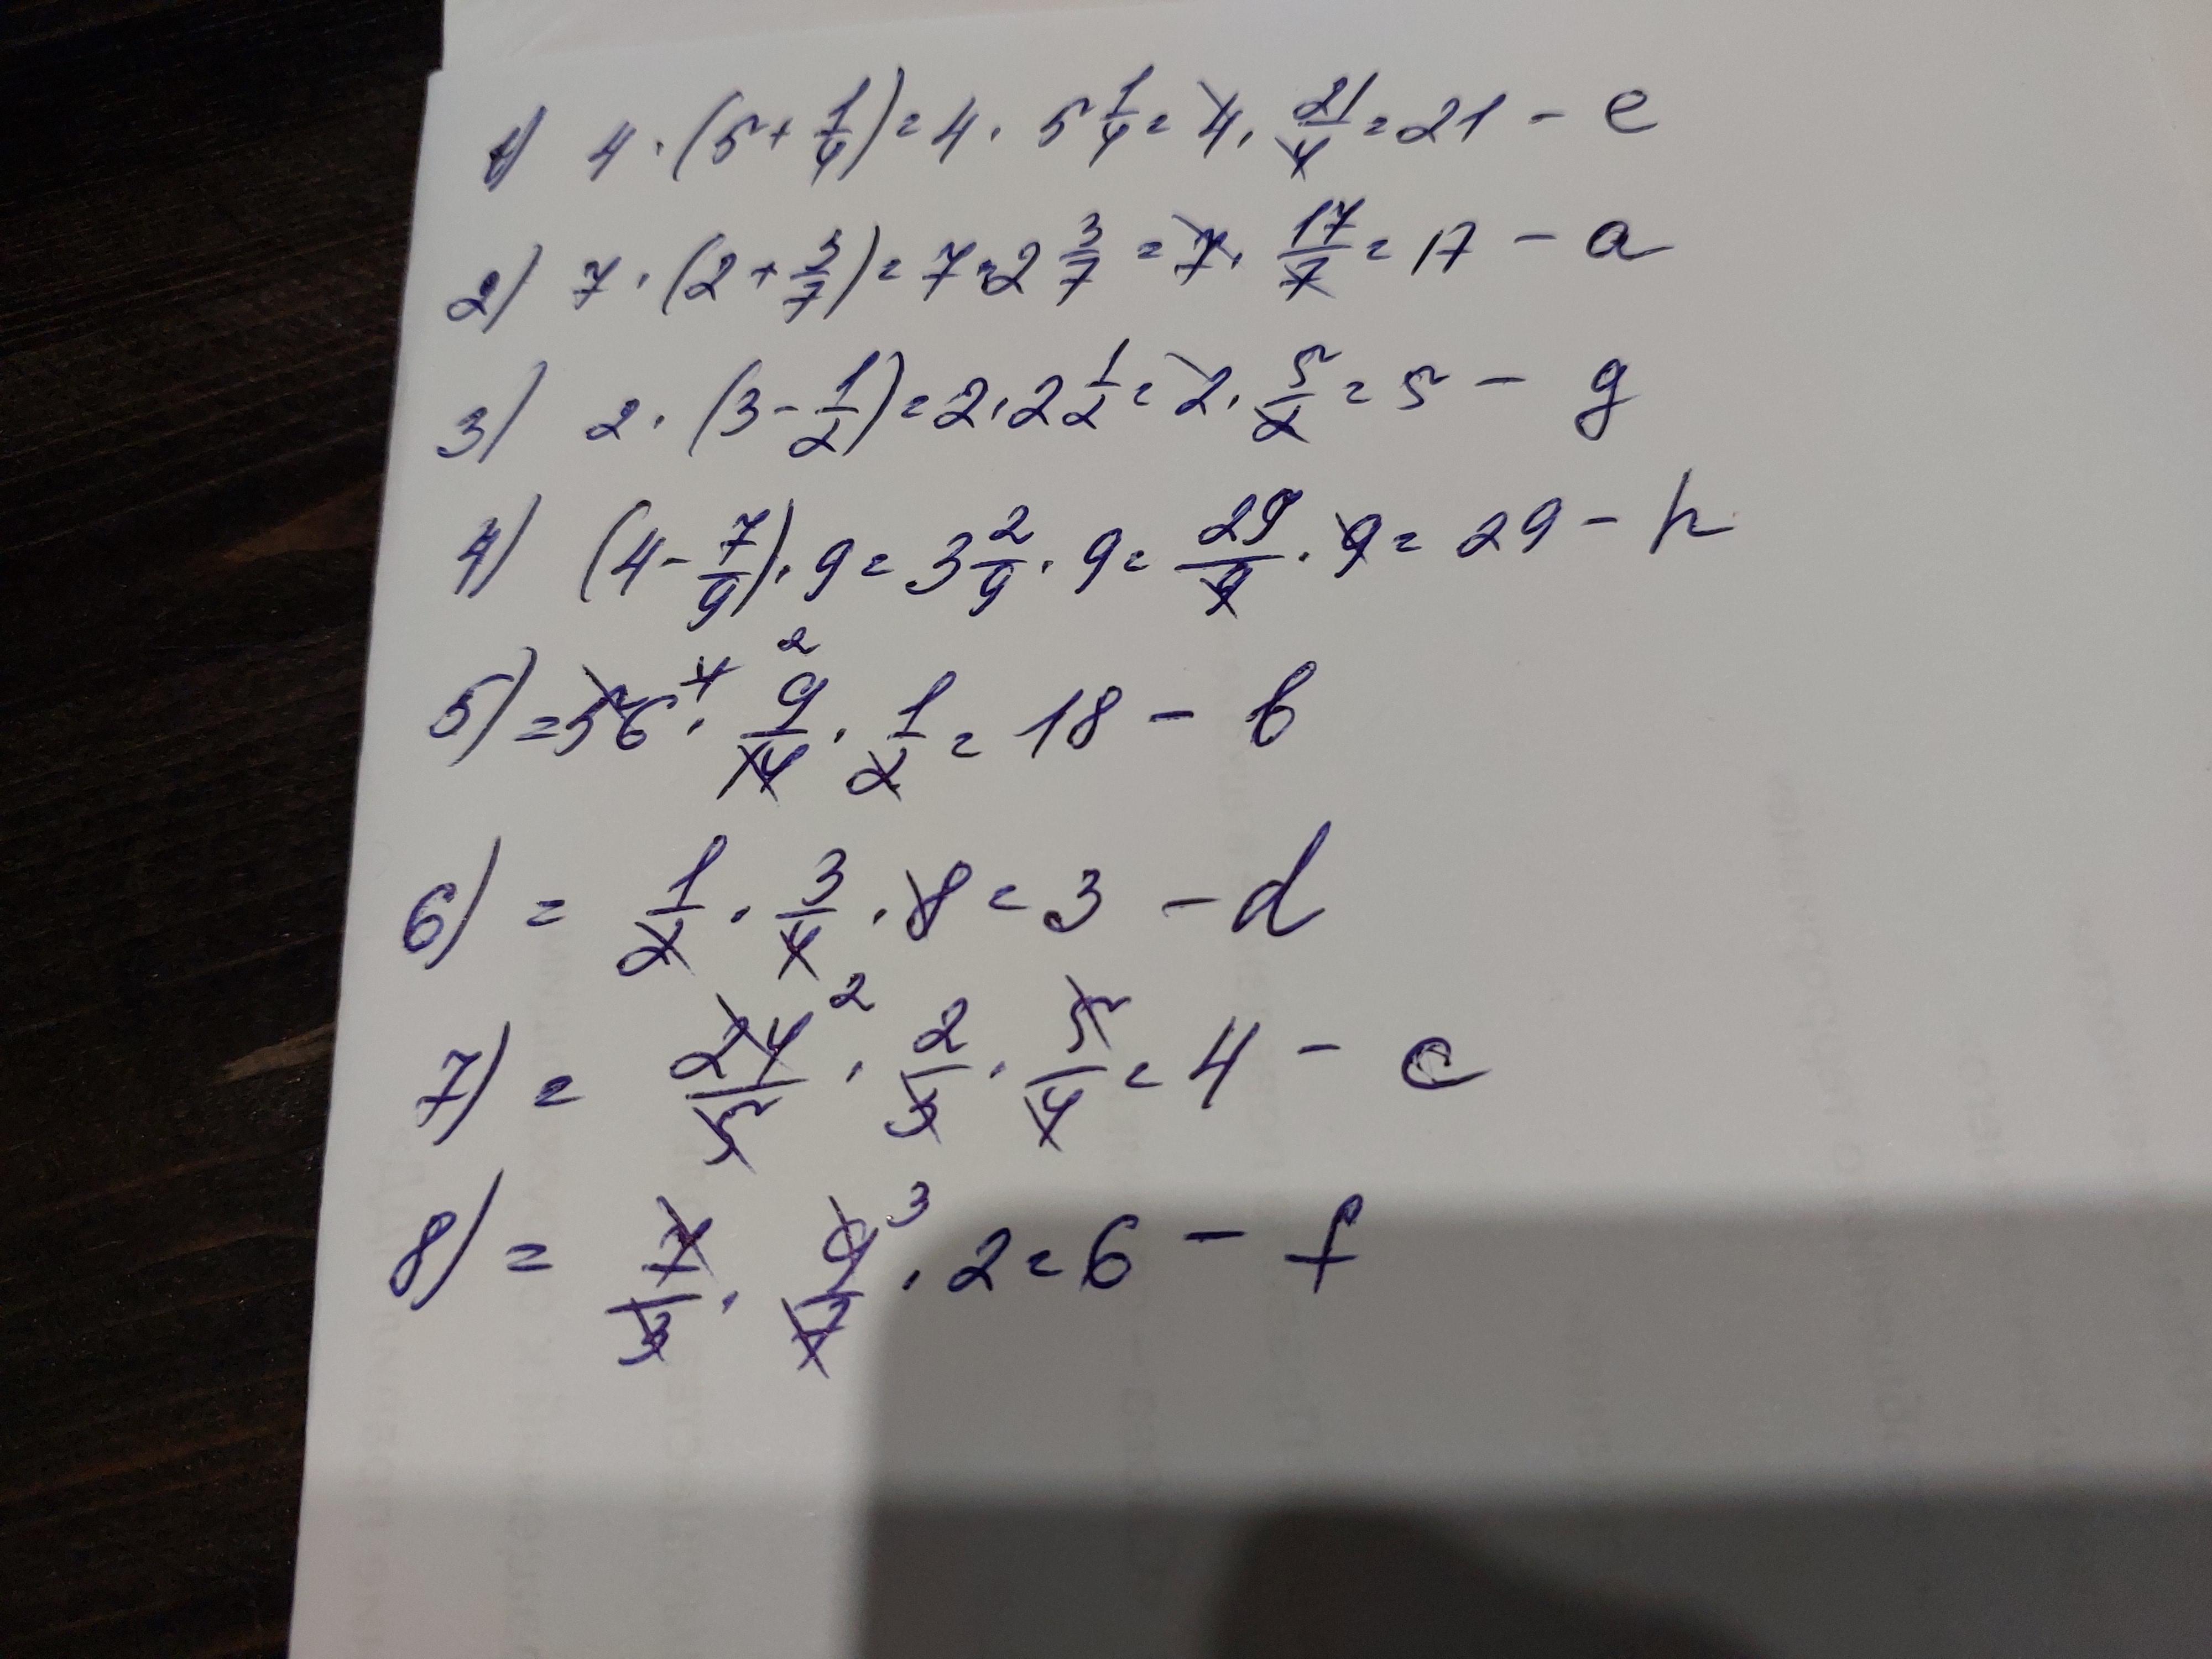 1) 4 · (5 + 1/4) = 4 · 5 1/4 = 4 · 21/4 = 21 - e
2) 7 · (2 + 3/7) = 7 · 2 3/7 = 7 · 17/7 = 17 - a
3) 2 · (3 - 1/2) = 2 · 2 1/2 = 2 · 5/2 = 5 - g
4) (4 - 7/9) · 9 = 3 2/9 · 9 = 29/9 · 9 = 29 - h
5) = 56 4 · 2 9/14 · 1/2 = 18 - b
6) = 1/2 · 3/4 · 8 = 3 - d
7) = 24/5 2 · 2/3 · 5/4 = 4 - c
8) = 7/3 · 9/7 3 · 2 = 6 - f